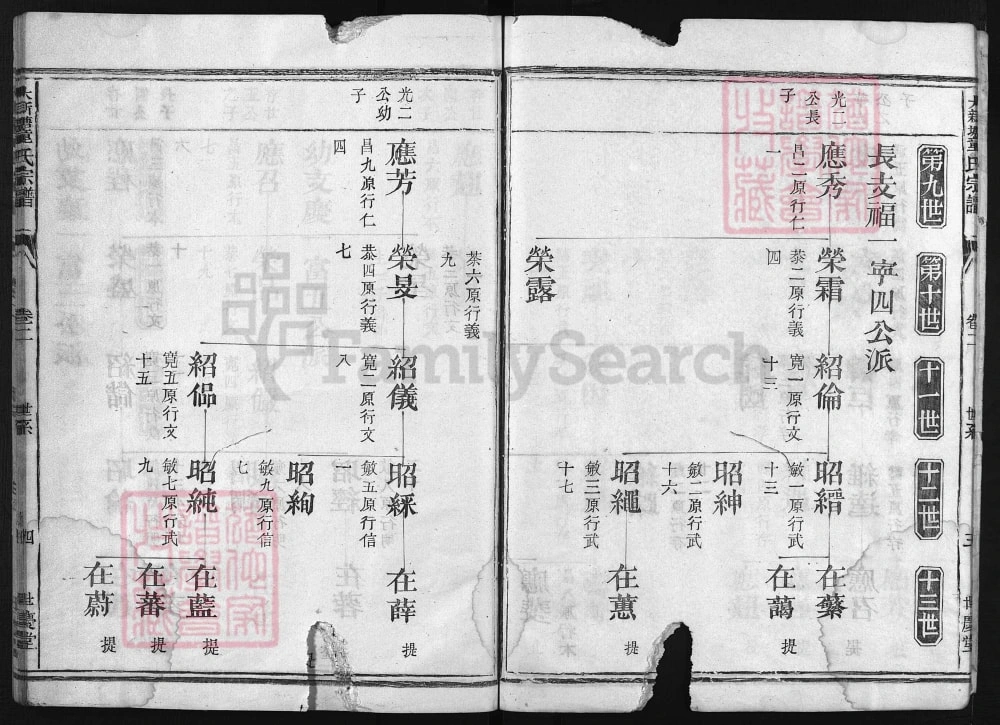 第九世
第十世
十一世
十二世
十三世
長支福一寧四公派
光二
公長
子
應秀
昌二原行仁
一
榮霜
恭二原行義
四
紹倫
寬一原行文
十三
昭縉
敏一原行武
十三
在蘩
提
在藹
提
昭紳
敏二原行武
十六
昭繩
敏三原行武
十七
在蕙
提
榮露
恭六原行義
九
世系
世慶堂
光二
公幼
子
應芳
昌九原行仁
四
榮旻
恭四原行義
七
紹儀
寬二原行文
八
昭綵
敏五原行信
一
在薛
提
昭絢
敏九原行信
七
紹侃
寬五原行文
十五
昭純
敏七原行武
九
在藍
提
在蕃
提
在蔚
提
童氏宗譜
卷二
世系
四
世慶堂
FamilySearch